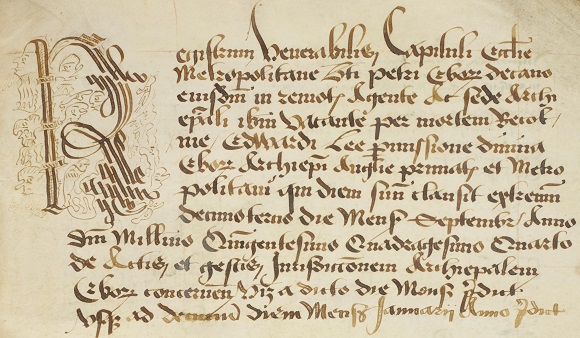 Registrum Venerabilis Capituli Ecclie
Metropolitane Sti petri Ebor decano
eiusdm in remot Agente Ac sede Archi
epali ibm Vacante per mortem
me Edwardi Lee pmissione divina
Ebor Archiepi Anglie primat et Metro
politani qui diem suu clausit extremu
decimotercio die Mens Septembr Anno
Dni Millimo Quingentesimo Quadragesimo Quarto
de Actis et gestis Jurisdictionem Archiepalem
Ebor concernen Viz a dicto die Mens pdict
Usq ad decimu diem Mens Januarii Anno pdict